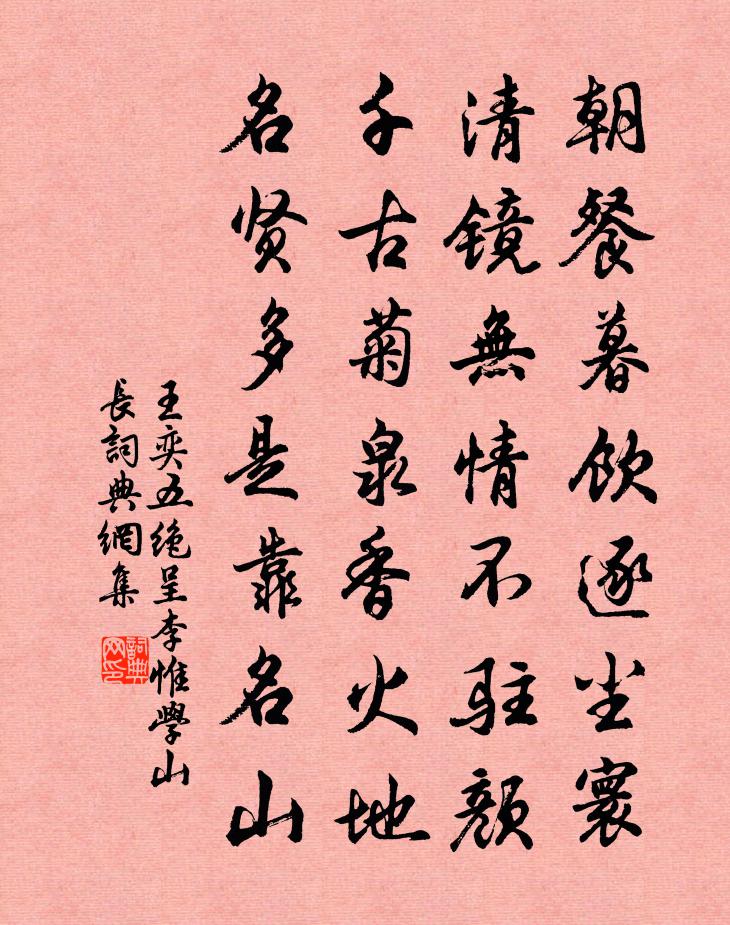 朝餐暮饮逐尘寰
清镜無情不驻颜
千古菊泉香火地
名贤多是靠名山
王奕五绝呈李惟學山
長詞典網集
詞典网印